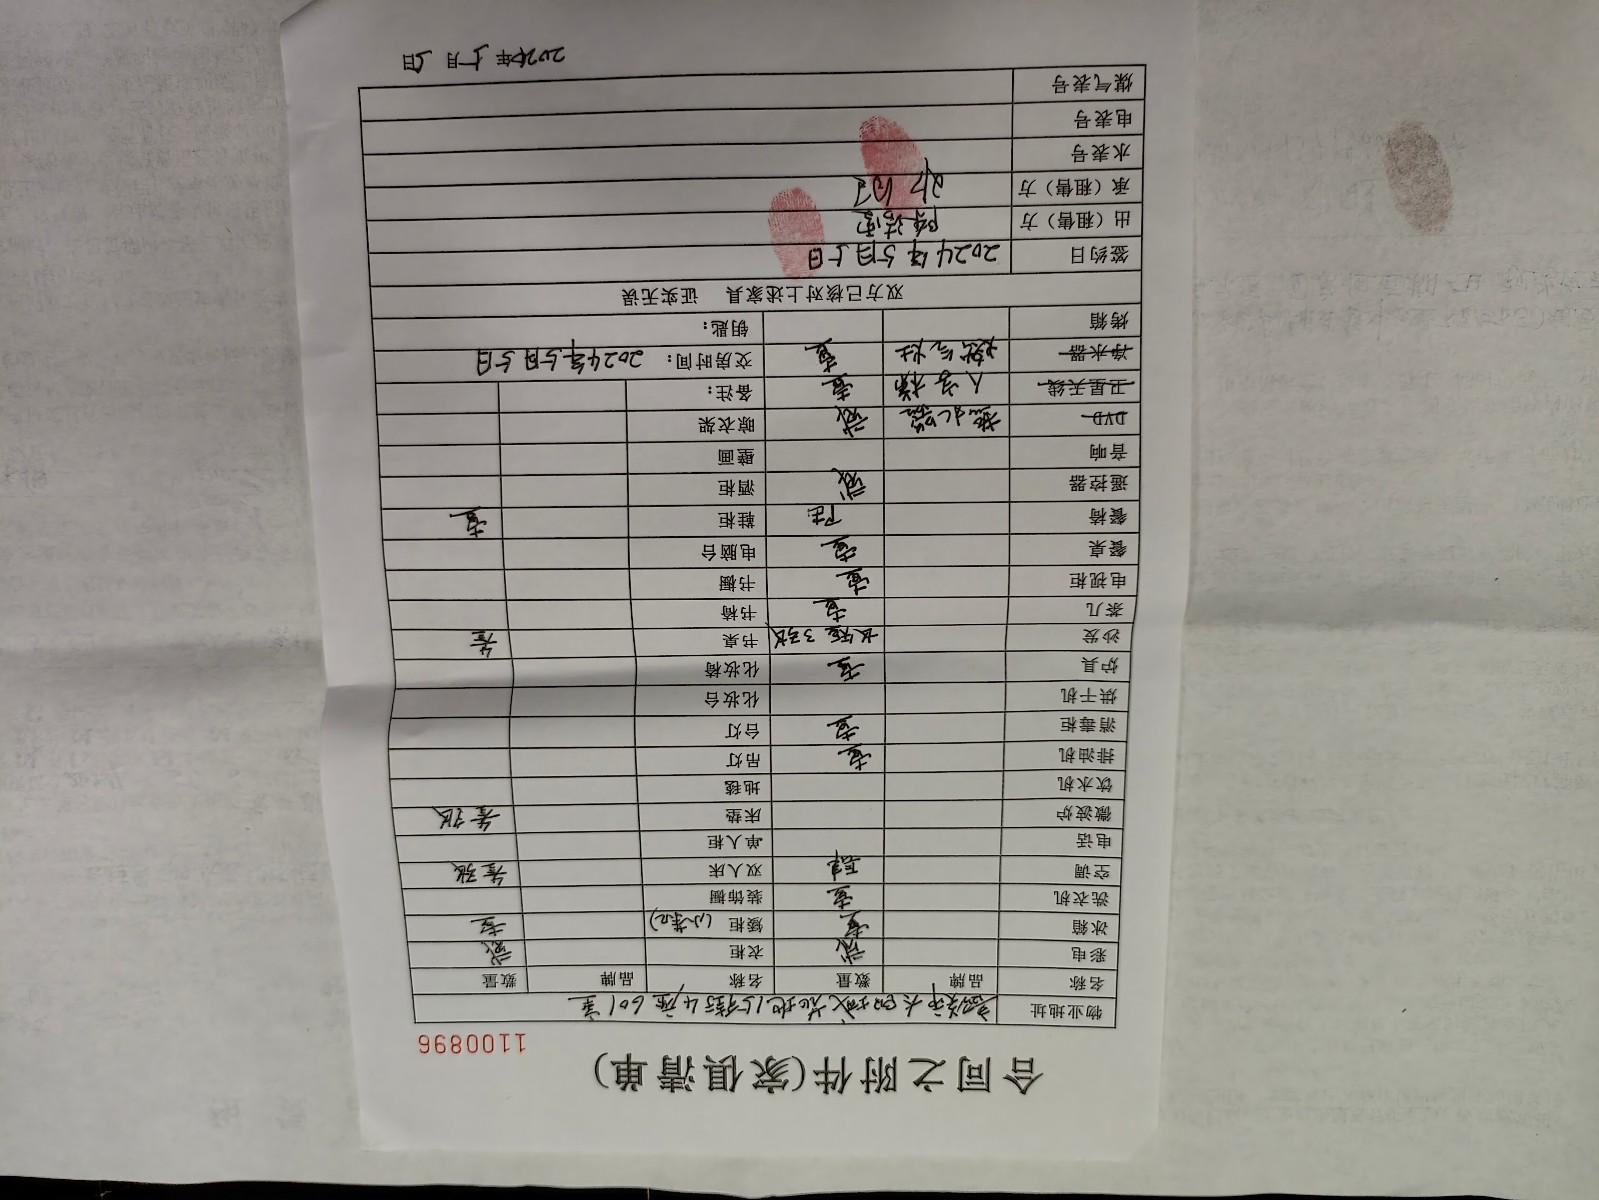 合同之附件(家俱清单)
1100896
物业地址 601室
名称 品牌 数量 名称 品牌 数量
彩电 贰 衣柜 贰
冰箱 壹 矮柜 壹
洗衣机 壹 装饰橱
空调 肆 双人床 叁张
电话 单人柜
微波炉 床垫 叁张
饮水机 地毯
排油机 壹 吊灯
消毒柜 壹 台灯
烘干机 化妆台
炉具 壹 化妆椅
沙发 3张 书桌 叁
茶几 壹 书椅
电视柜 壹 书橱
餐桌 壹 电脑台
餐椅 伍 鞋柜 壹
遥控器 贰 酒柜
音响 壁画
DVD 热水器 贰 晾衣架
卫星天线 人字梯 壹 备注:
净水器 燃气灶 壹 交房时间: 2024年5月5日
烤箱 钥匙:
双方已核对上述家具 证实无误
签约日 2024年5月5日
出(租售)方
承(租售)方
水表号
电表号
煤气表号
2024年5月5日